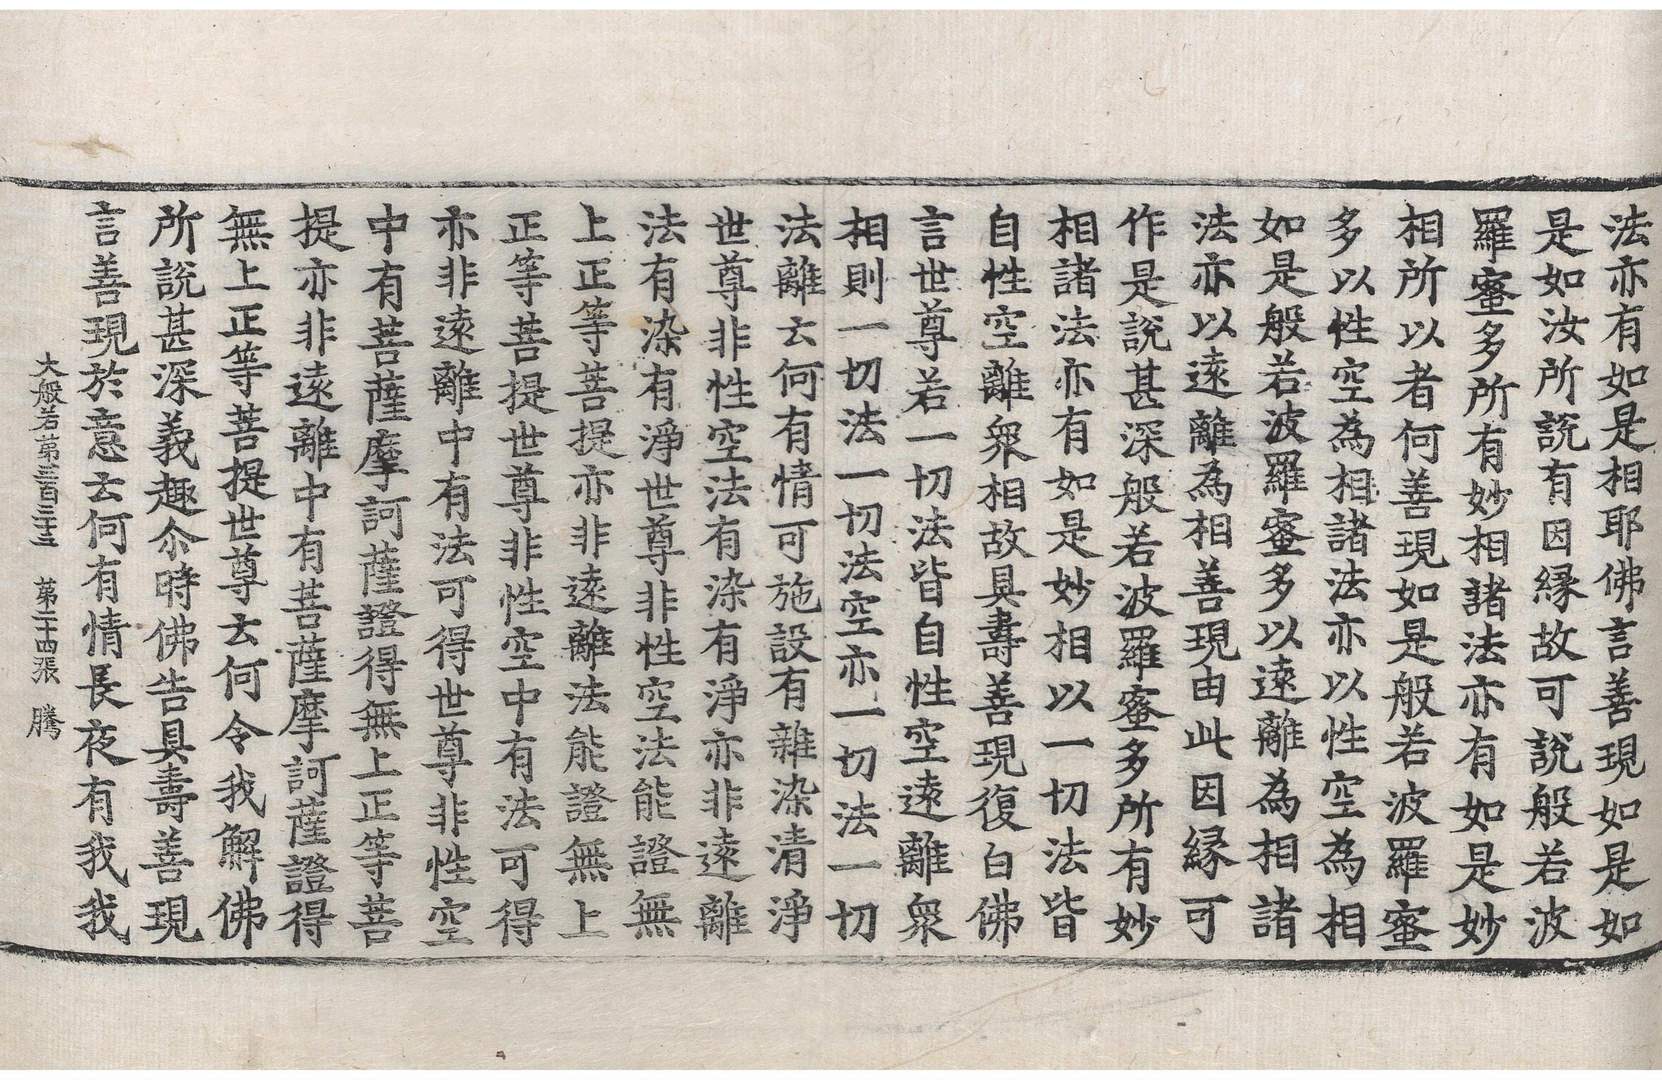 法亦有如是相耶佛言善現如是如
是如汝所說有因緣故可說般若波
羅蜜多所有妙相諸法亦有如是妙
相所以者何善現如是般若波羅蜜
多以性空為相諸法亦以性空為相
如是般若波羅蜜多以遠離為相諸
法亦以遠離為相善現由此因緣可
作是說甚深般若波羅蜜多所有妙
相諸法亦有如是妙相以一切法皆
自性空離眾相故具壽善現復白佛
言世尊若一切法皆自性空遠離眾
相則一切法一切法空亦一切法一切
法離云何有情可施設有雜染清淨
世尊非性空法有染有淨亦非遠離
法有染有淨世尊非性空法能證無
上正等菩提亦非遠離法能證無上
正等菩提世尊非性空中有法可得
亦非遠離中有法可得世尊非性空
中有菩薩摩訶薩證得無上正等菩
提亦非遠離中有菩薩摩訶薩證得
無上正等菩提世尊云何令我解佛
所說甚深義趣尒時佛告具壽善現
言善現於意云何有情長夜有我我
大般若第三百三十五 第二十四張 騰